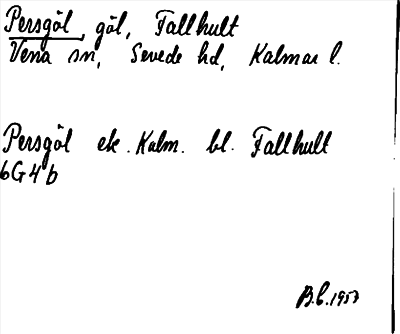 Persgöl, göl, Fallhult
Vena sn, Sevede hd, Kalmar l.
Persgöl ek. Kalm. bl. Fallhult
6G4b
B.C. 1953